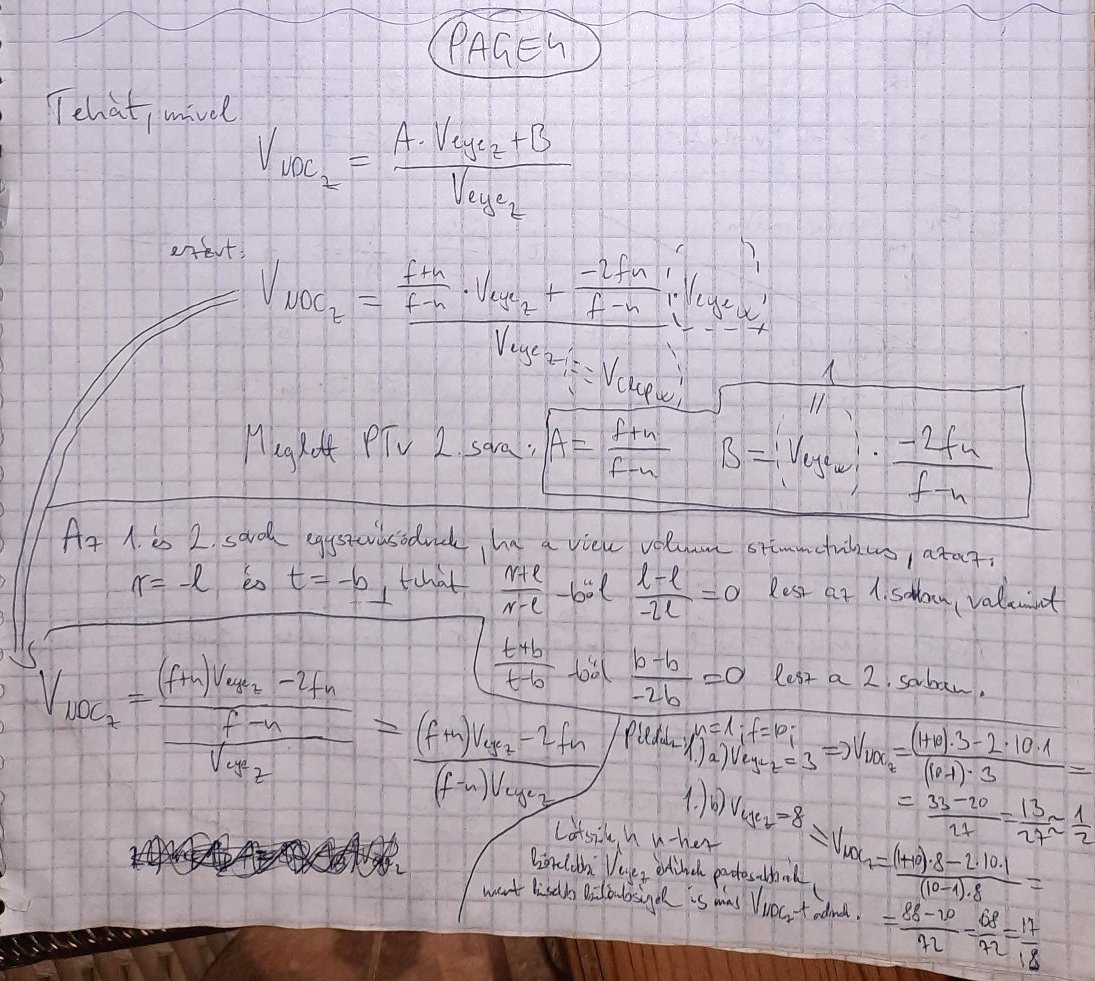 PAGE 4
Tehát, mivel
V_NDC_z = (A · Veye_z + B) / Veye_z
ezért:
V_NDC_z = ((f+n)/(f-n) · Veye_z + (-2fn)/(f-n) · Veye_w) / (Veye_z = Vclip_w)
1
//
Meglett PTv 2. sora: A = (f+n)/(f-n) B = Veye_w · (-2fn)/(f-n)
Az 1. és 2. sorok egyszerűsödnek, ha a view volume szimmetrikus, azaz:
r = -l és t = -b, tehát (r+l)/(r-l) -ből (l-l)/(-2l) = 0 lesz az 1. sorban, valamint
(t+b)/(t-b) -ből (b-b)/(-2b) = 0 lesz a 2. sorban.
V_NDC_z = (((f+n)Veye_z - 2fn)/(f-n)) / Veye_z = ((f+n)Veye_z - 2fn) / ((f-n)Veye_z)
Példák: n=1; f=10;
1.) a) Veye_z = 3 => V_NDC_z = ((1+10)·3 - 2·10·1) / ((10-1)·3) =
= (33-20)/27 = 13/27 ≈ 1/2
1.) b) Veye_z = 8 => V_NDC_z = ((1+10)·8 - 2·10·1) / ((10-1)·8) =
= (88-20)/72 = 68/72 = 17/18
Látszik, h n-hez
közelebbi Veye_z értékek pontosabbak,
mert kisebb különbségek is más V_NDC_z-t adnak.